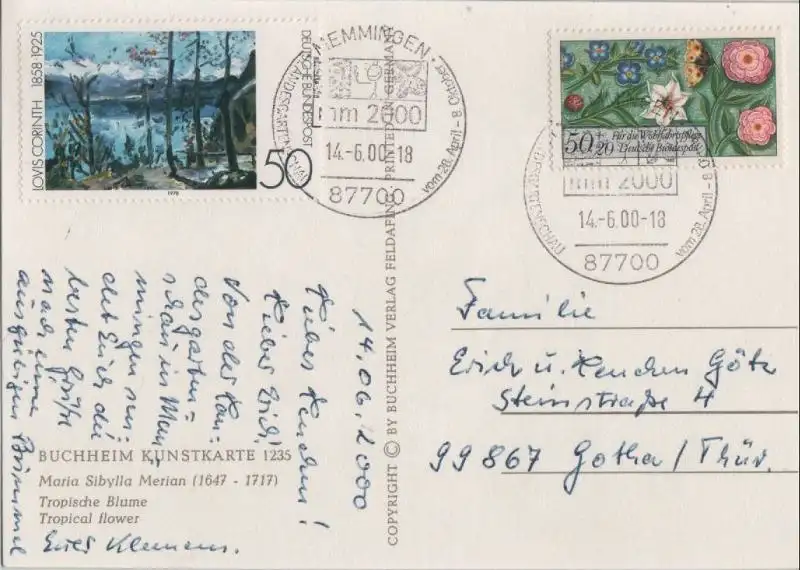 LOVIS CORINTH 1858-1925
DEUTSCHE BUNDESPOST
50
1978
MEMMINGEN
LANDESGARTENSCHAU
mm 2000
14.-6.00-18
vom 28. April - 8. Oktober
87700
50+20 Für die Wohlfahrtspflege
Deutsche Bundespost
mm 2000
14.-6.00-18
LANDESGARTENSCHAU
vom 28. April - 8. O
87700
14.06.2000
Liebes Kenchen!
Lieber Erich!
Von der Lan-
desgarten-
schau in Mem-
mingen sen-
det Euch die
besten Grüße
nach einem
ausgiebigen Bummel
Euer Klemens.
BUCHHEIM KUNSTKARTE 1235
Maria Sibylla Merian (1647 - 1717)
Tropische Blume
Tropical flower
COPYRIGHT © BY BUCHHEIM VERLAG FELDAFING PRINTED IN GERMANY
Familie
Erich u. Kenchen Götz
Steinstraße 4
99867 Gotha/Thür.